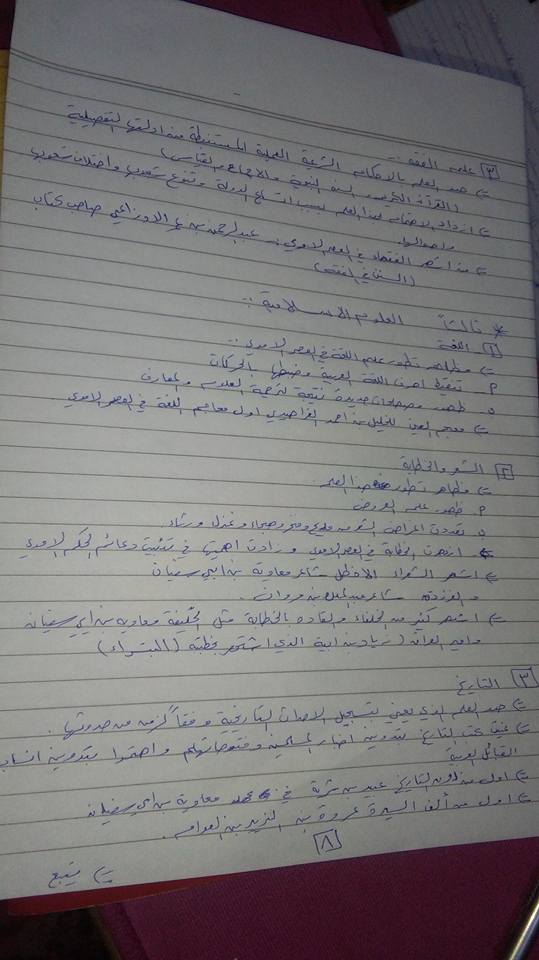 [٣] علم الفقه :-
=> هو العلم بالاحكام الشرعية العملية المستنبطة من ادلتها التفصيلية
(القرآن الكريم والسنة النبوية والاجماع والقياس)
=> ازداد الاهتمام بهذا العلم بسبب اتساع الدولة وتنوع شعوبها واختلاف شعوبها
واحوالها
=> من اشهر الفقهاء في العصر الاموي :- عبد الرحمن بن الاوزاعي صاحب كتاب
(السنن في الفقه)
* ثالثاً العلوم الاسلامية :-
[١] اللغة
=> مظاهر تطور علم اللغة في العصر الاموي :-
٢- تنقيط احرف اللغة العربية وضبطها بالحركات
ن- ظهور مصطلحات جديدة نتيجة لترجمة العلوم والمعارف
=> معجم العين للخليل بن احمد الفراهيدي اول معاجم اللغة في العصر الاموي
[٢] الشعر والخطابة
=> مظاهر تطور هذا العلم
٢ ظهور علم العروض
ن تعددت اغراض الشعر من مديح وفخر وهجاء وغزل ورثاء
ازدهرت الخطابة في العصر الاموي وزادت اهميتها في تثبيت دعائم الحكم الاموي
=> اشهر الشعراء الاخطل شاعر معاوية بن ابي سفيان
والفرزدق شاعر عبد الملك بن مروان .
=> اشتهر كثير من الخلفاء والقاده بالخطابة مثل الخليفة معاوية بن ابي سفيان
وامير العراق (زياد بن ابية الذي اشتهر بخطبة (البتراء)
[٣] التاريخ
=> هو العلم الذي يعنى بتسجيل الاحداث التاريخية وفقاً لزمن حدوثها .
=> عنيت كتب التاريخ بتدوين اخبار المسلمين وفتوحاتهم واهتموا بتدوين انساب
القبائل العربية
=> اول من دون التاريخ عبيد بن شرية في معاوية بن ابي سفيان
=> اول من ألف السيرة عروة بن الزبير بن العوام .
[٨]
=> يتبع